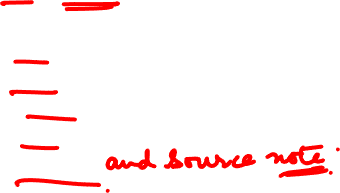 and Source note.